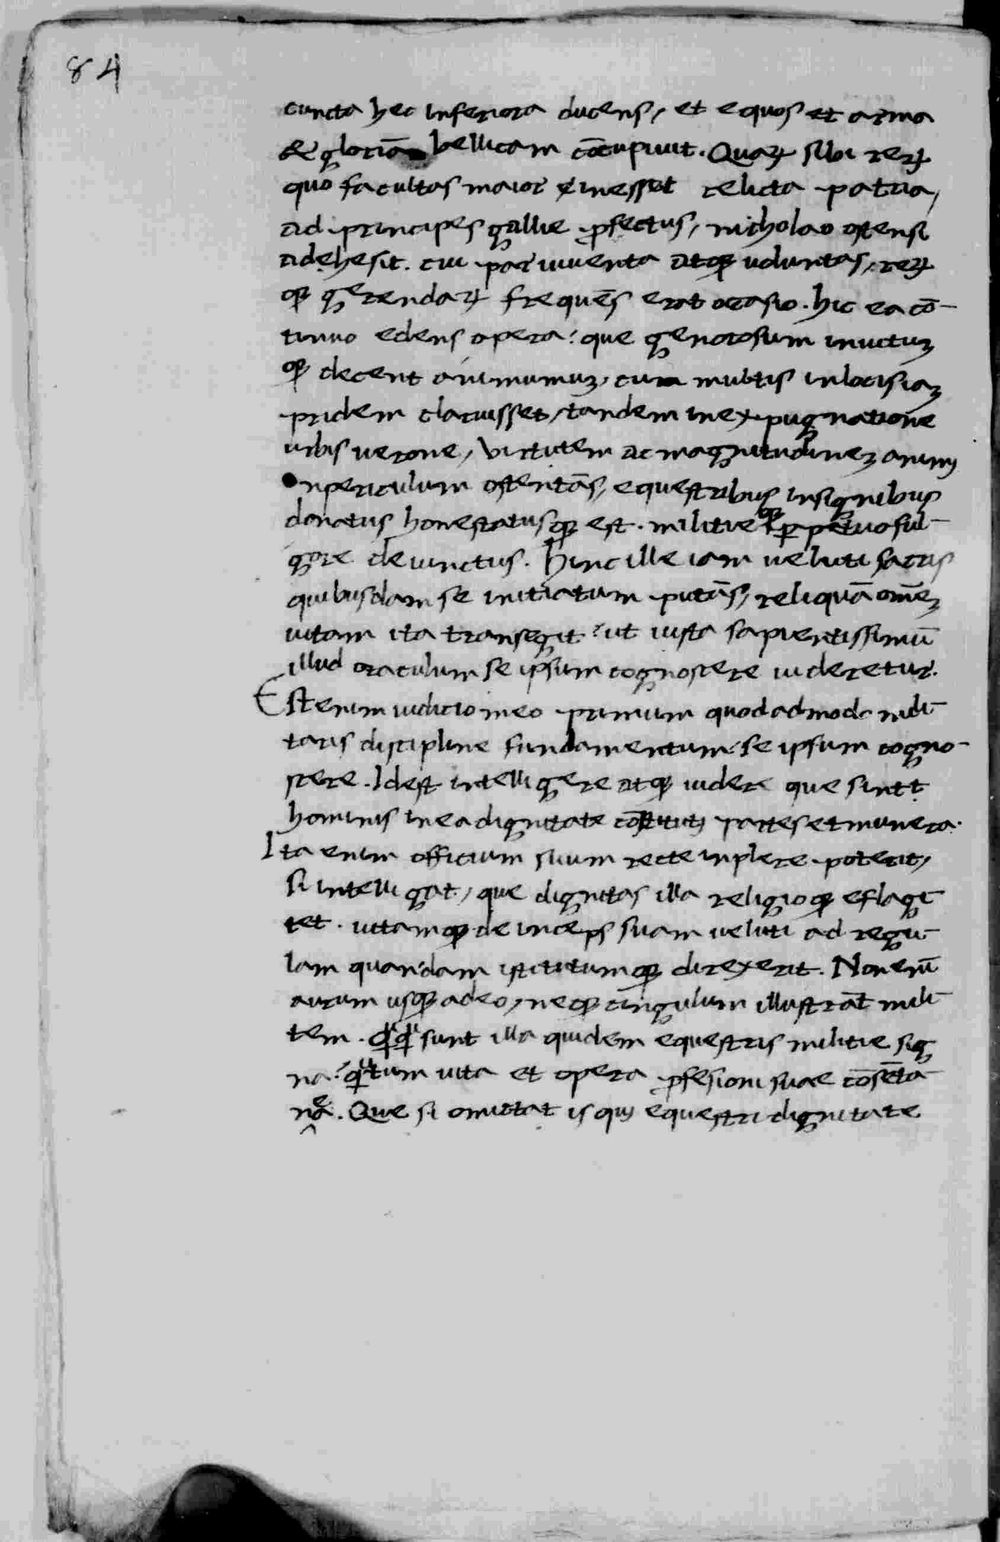 84
cuncta hec inferiora ducens, et equos et arma
& gloriā bellicam cōcupivit. Quaꝝ sibi reꝝ
quo facultas maior inesset relicta patria,
ad principes gallie ꝓfectus, nicholao estensi
adehesit. cui par iuventa atqꝫ voluntas, reꝝ
qꝫ gerendaꝝ frequēs erat ocasio. hic ea cō-
tinuo edens opera: que generosum invictuꝫ
qꝫ decent animumuꝫ, cum multis in locis iaꝫ
pridem claruisset, tandem in expugnatione
urbis verone, virtutem ac magnitudineꝫ animi
inpericulum ostentās, equestribus insignibus
donatus honestatusqꝫ est. militie qꝫ ꝑpetuo ful-
gore devinctus. Hinc ille iam veluti sacris
quibusdam se initiatum putās, reliquā omēꝫ
vitam ita transegit: ut iusta sapientissimū
illud oraculum se ipsum cognoscere videretur.
Est enim iudicio meo primum quodadmodo mili-
taris discipline fundamentum: se ipsum cogno-
scere. Idest intelligere atqꝫ videre que sint
hominis in ea dignitate cōstituti partes et munera.
Ita enim officium suum recte inplere poterit,
si intelligat, que dignitas illa religioqꝫ eflagi-
tet. vitamqꝫ deinceps suam veluti ad regu-
lam quandam istitutumqꝫ direxerit. Non enī
aurum usqꝫ adeo, neqꝫ cingulum illustrāt mili-
tem. qꝫqꝫ sunt illa quidem equestris militie sig
na: qꝫtum vita et opera ꝓfesioni suae cōsēta-
nea. Que si omittat is qui equestri dignitate